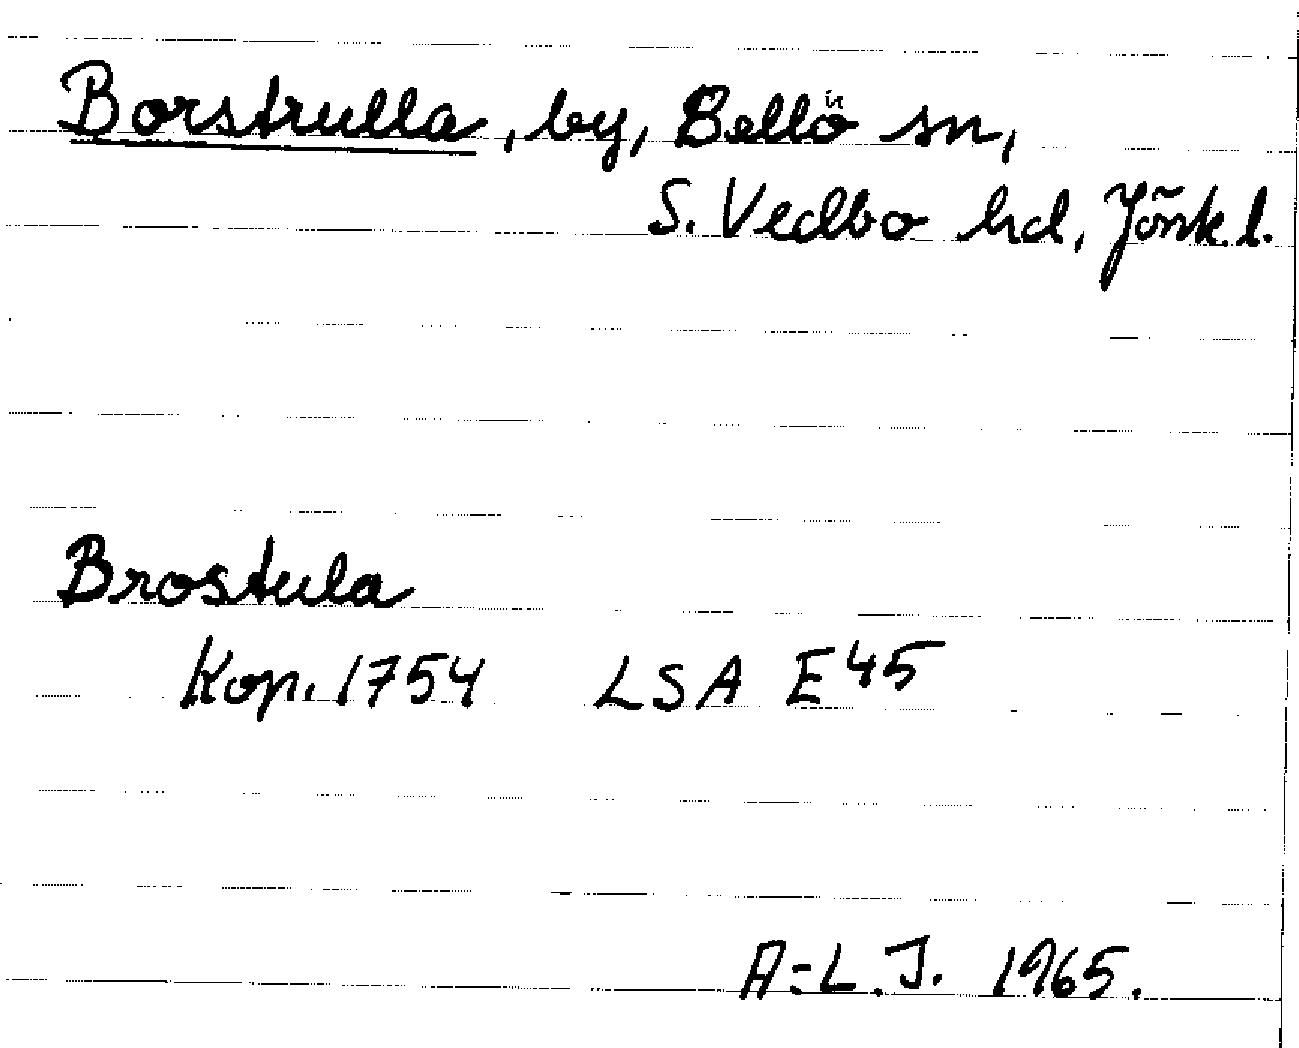 Borstrulla, by, Bellö sn,
S. Vedbo hd, Jönk. l.
Brostula
Kop. 1754 LSA E45
A-L. J. 1965.